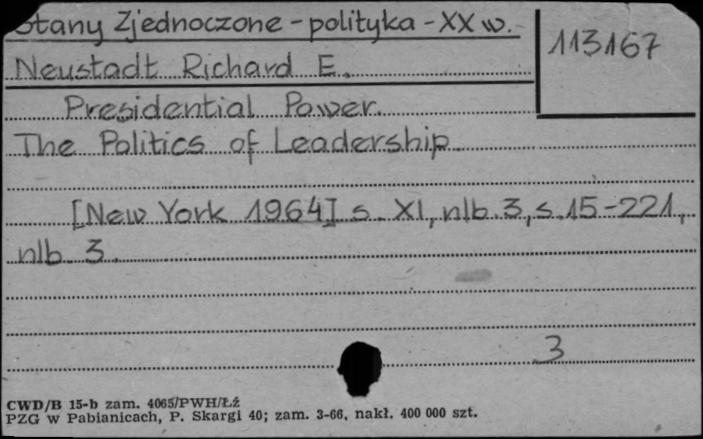 Stany Zjednoczone - polityka - XX w.
113167
Neustadt Richard E.
Presidential Power.
The Politics of Leadership.
[New York 1964] s. XI, nlb. 3, s. 15-221,
nlb. 3.
3
CWD/B 15-b zam. 4065/PWH/Łź
PZG w Pabianicach, P. Skargi 40; zam. 3-66, nakł. 400 000 szt.